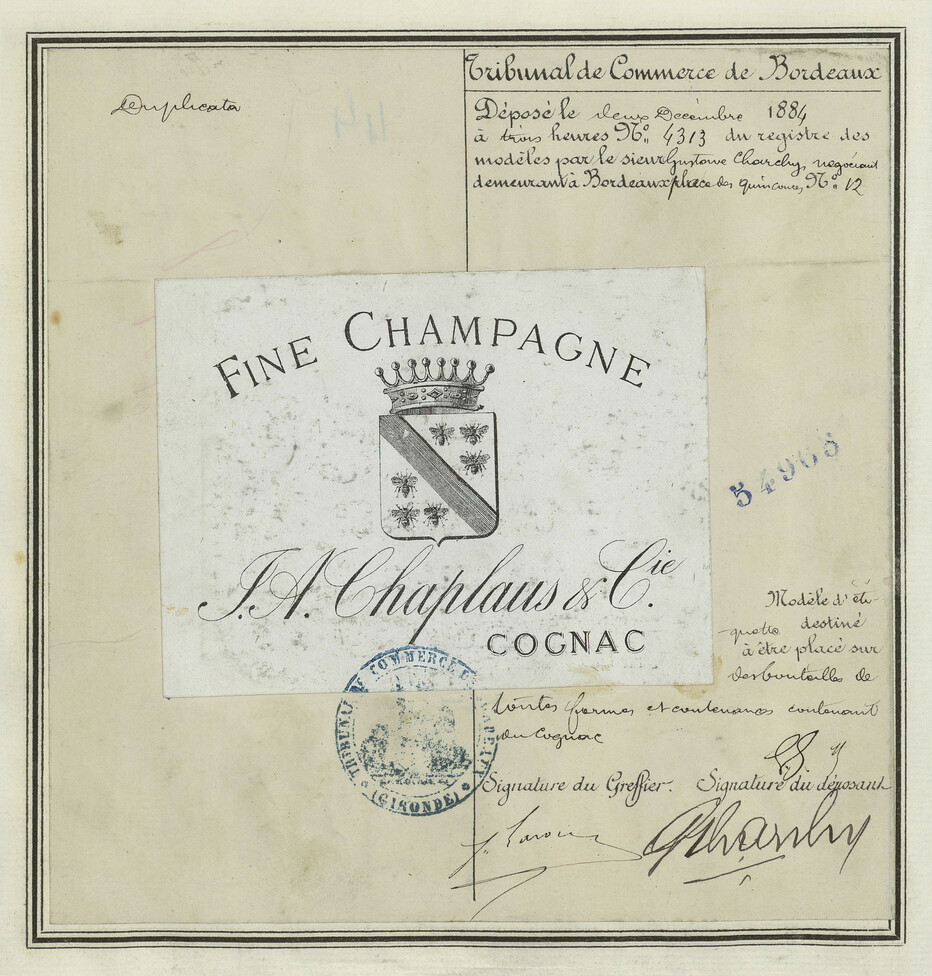 Duplicata
44
Tribunal de Commerce de Bordeaux
Déposé le deux Decembre 1884
à trois heures Nº. 4313 du registre des
modèles par le sieur Gustave Charehy, negociant
demeurant à Bordeaux place des quinconces Nº. 12
FINE CHAMPAGNE
J. A. Chaplaus & Cie.
COGNAC
54965
Modèle d'éti-
quette destiné
à être placé sur
des bouteilles de
toutes formes et contenances contenant
du Cognac
TRIBUNAL DE COMMERCE DE BORDEAUX
(GIRONDE)
Signature du Greffier. Signature du déposant